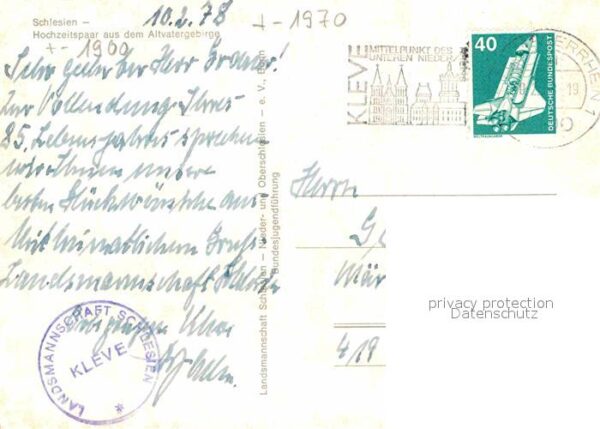 Schlesien –
Hochzeitspaar aus dem Altvatergebirge
10.2.78
+-1970
+-1960
Sehr geehrter Herr
Zur Vollendung Ihres
85. Lebensjahres sprechen
wir Ihnen unsere
besten Glückwünsche aus
Mit heimatlichem Gruß
Landsmannschaft Schlesien
Kleve
LANDSMANNSCHAFT SCHLESIEN
KLEVE
Landsmannschaft Schlesien – Nieder- und Oberschlesien – e. V., Bonn
Bundesjugendführung
KLEVE
MITTELPUNKT DES
UNTEREN NIEDER
40
DEUTSCHE BUNDESPOST
ERRHEIN 1
19
Herrn
Mär
419
privacy protection
Datenschutz